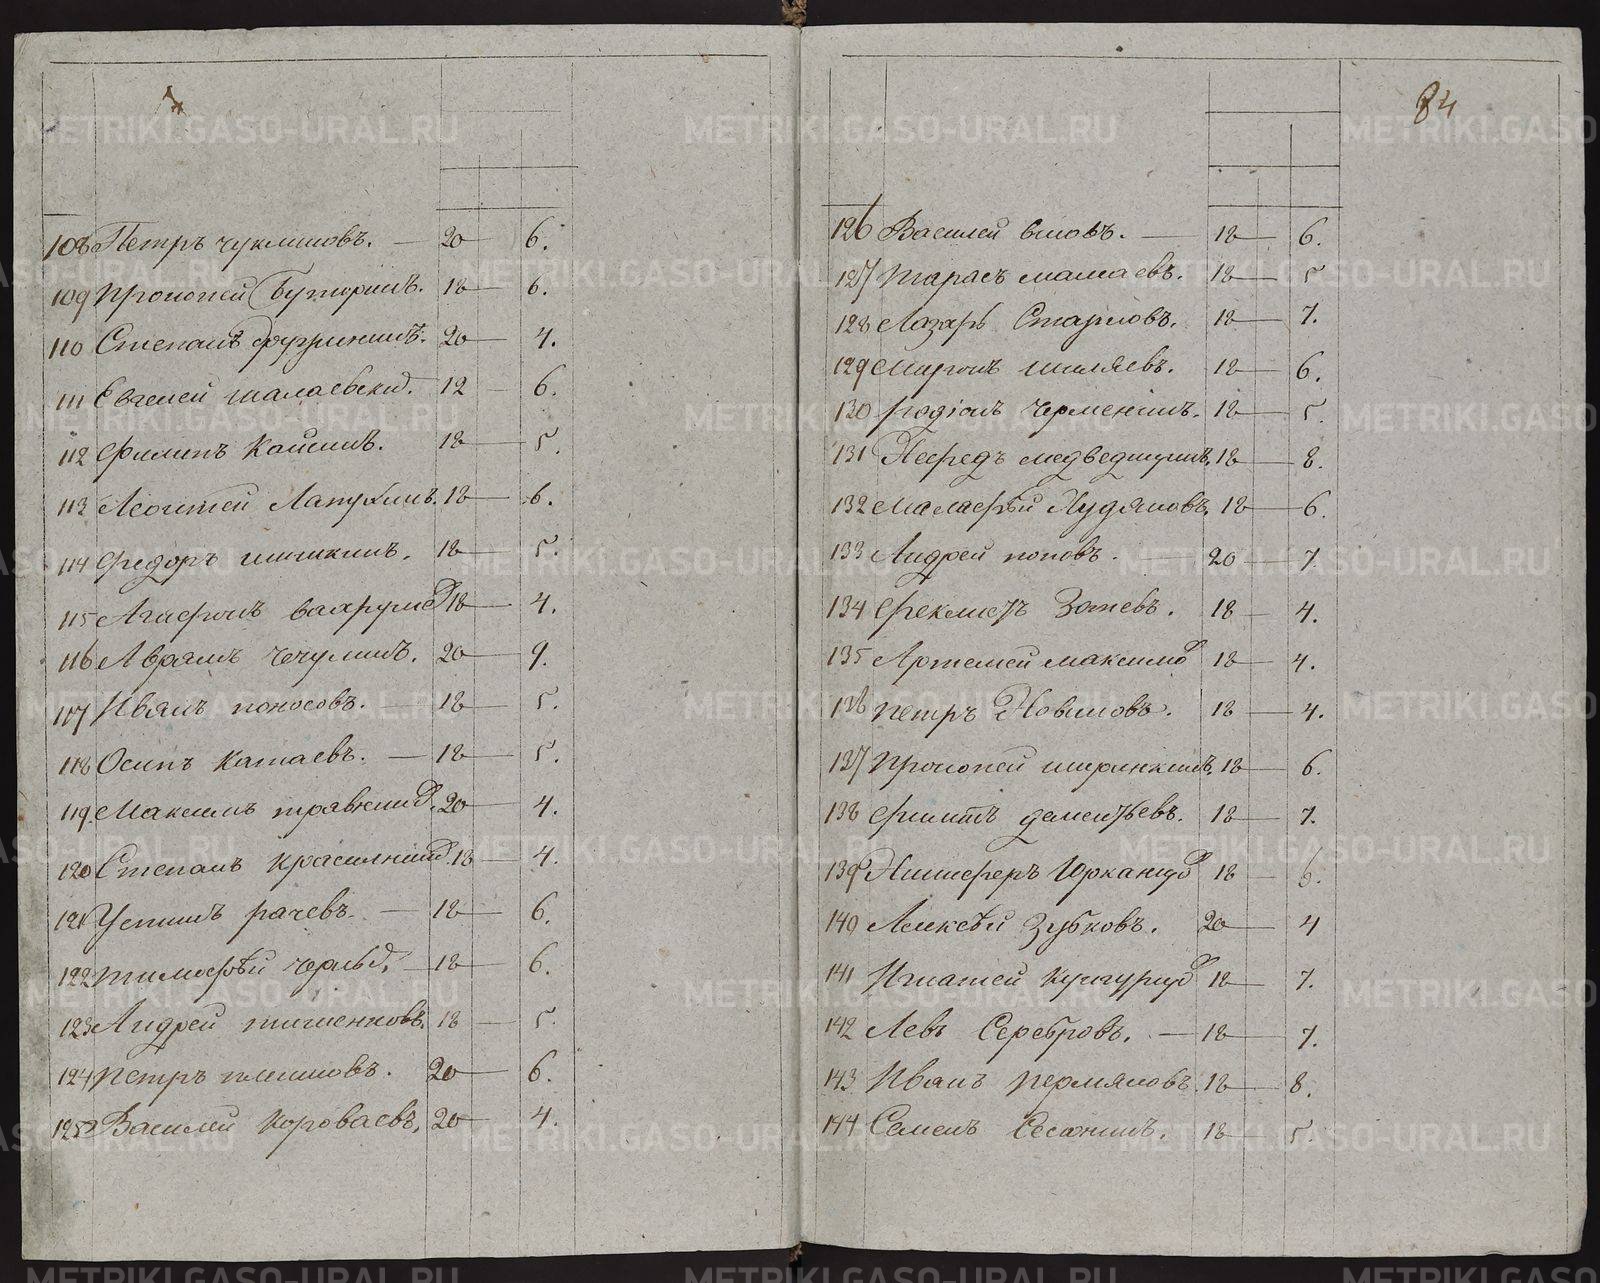 108 Петръ чуклиновъ. — 20 — 6.
109 прокопей Буторинъ. 18 — 6.
110 Степанъ 20 — 4.
111 Евгеней шалаевски. 12 — 6.
112 Филипъ Кайсинъ. 18 — 5.
113 Леонтей Лапухинъ. 18 — 6.
114 Федоръ шишкинъ. 18 — 5.
115 Агафонъ вахруше 18 — 4.
116 Аврамъ чечулинъ. 20 — 9.
117 Иванъ поносовъ. — 18 — 5.
118 Осипъ катаевъ. — 18 — 5.
119 Максимъ травкин. 20 — 4.
120 Степанъ красилник. 18 — 4.
121 Устинъ рачевъ. — 18 — 6.
122 тимофѣй — 18 — 6.
123 Андрей тишенковъ. 18 — 5.
124 петръ плишковъ. 20 — 6.
125 Василей короваевъ. 20 — 4.
84
126 Василей — 18 — 6.
127 тарасъ мамаевъ. 18 — 5
128 Лазарь Стариковъ. 18 — 7.
129 миронъ шиляевъ. 18 — 6.
130 родіонъ черменинъ. 18 — 5.
131 Нефедъ медведчик 18 — 8.
132 малафѣй Худяковъ. 18 — 6.
133 Андрей поповъ. — 20 — 7
134 Феклистъ Зотевъ. 18 — 4.
135 Артемей максимо 18 — 4.
136 петръ Новиковъ. 18 — 4.
137 прокопей ширинкинъ. 18 — 6.
138 Филипъ дементьевъ. 18 — 7.
139 Никиферъ Юрканцо 18 — 6.
140 Алексѣй Зубковъ. 20 — 4
141 Игнатей кунгурцо 18 — 7.
142 Левъ Серебровъ. — 18 — 7.
143 Иванъ пермяковъ. 18 — 8.
144 Семенъ Сесюнинъ. 18 — 5.
METRIKI.GASO-URAL.RU